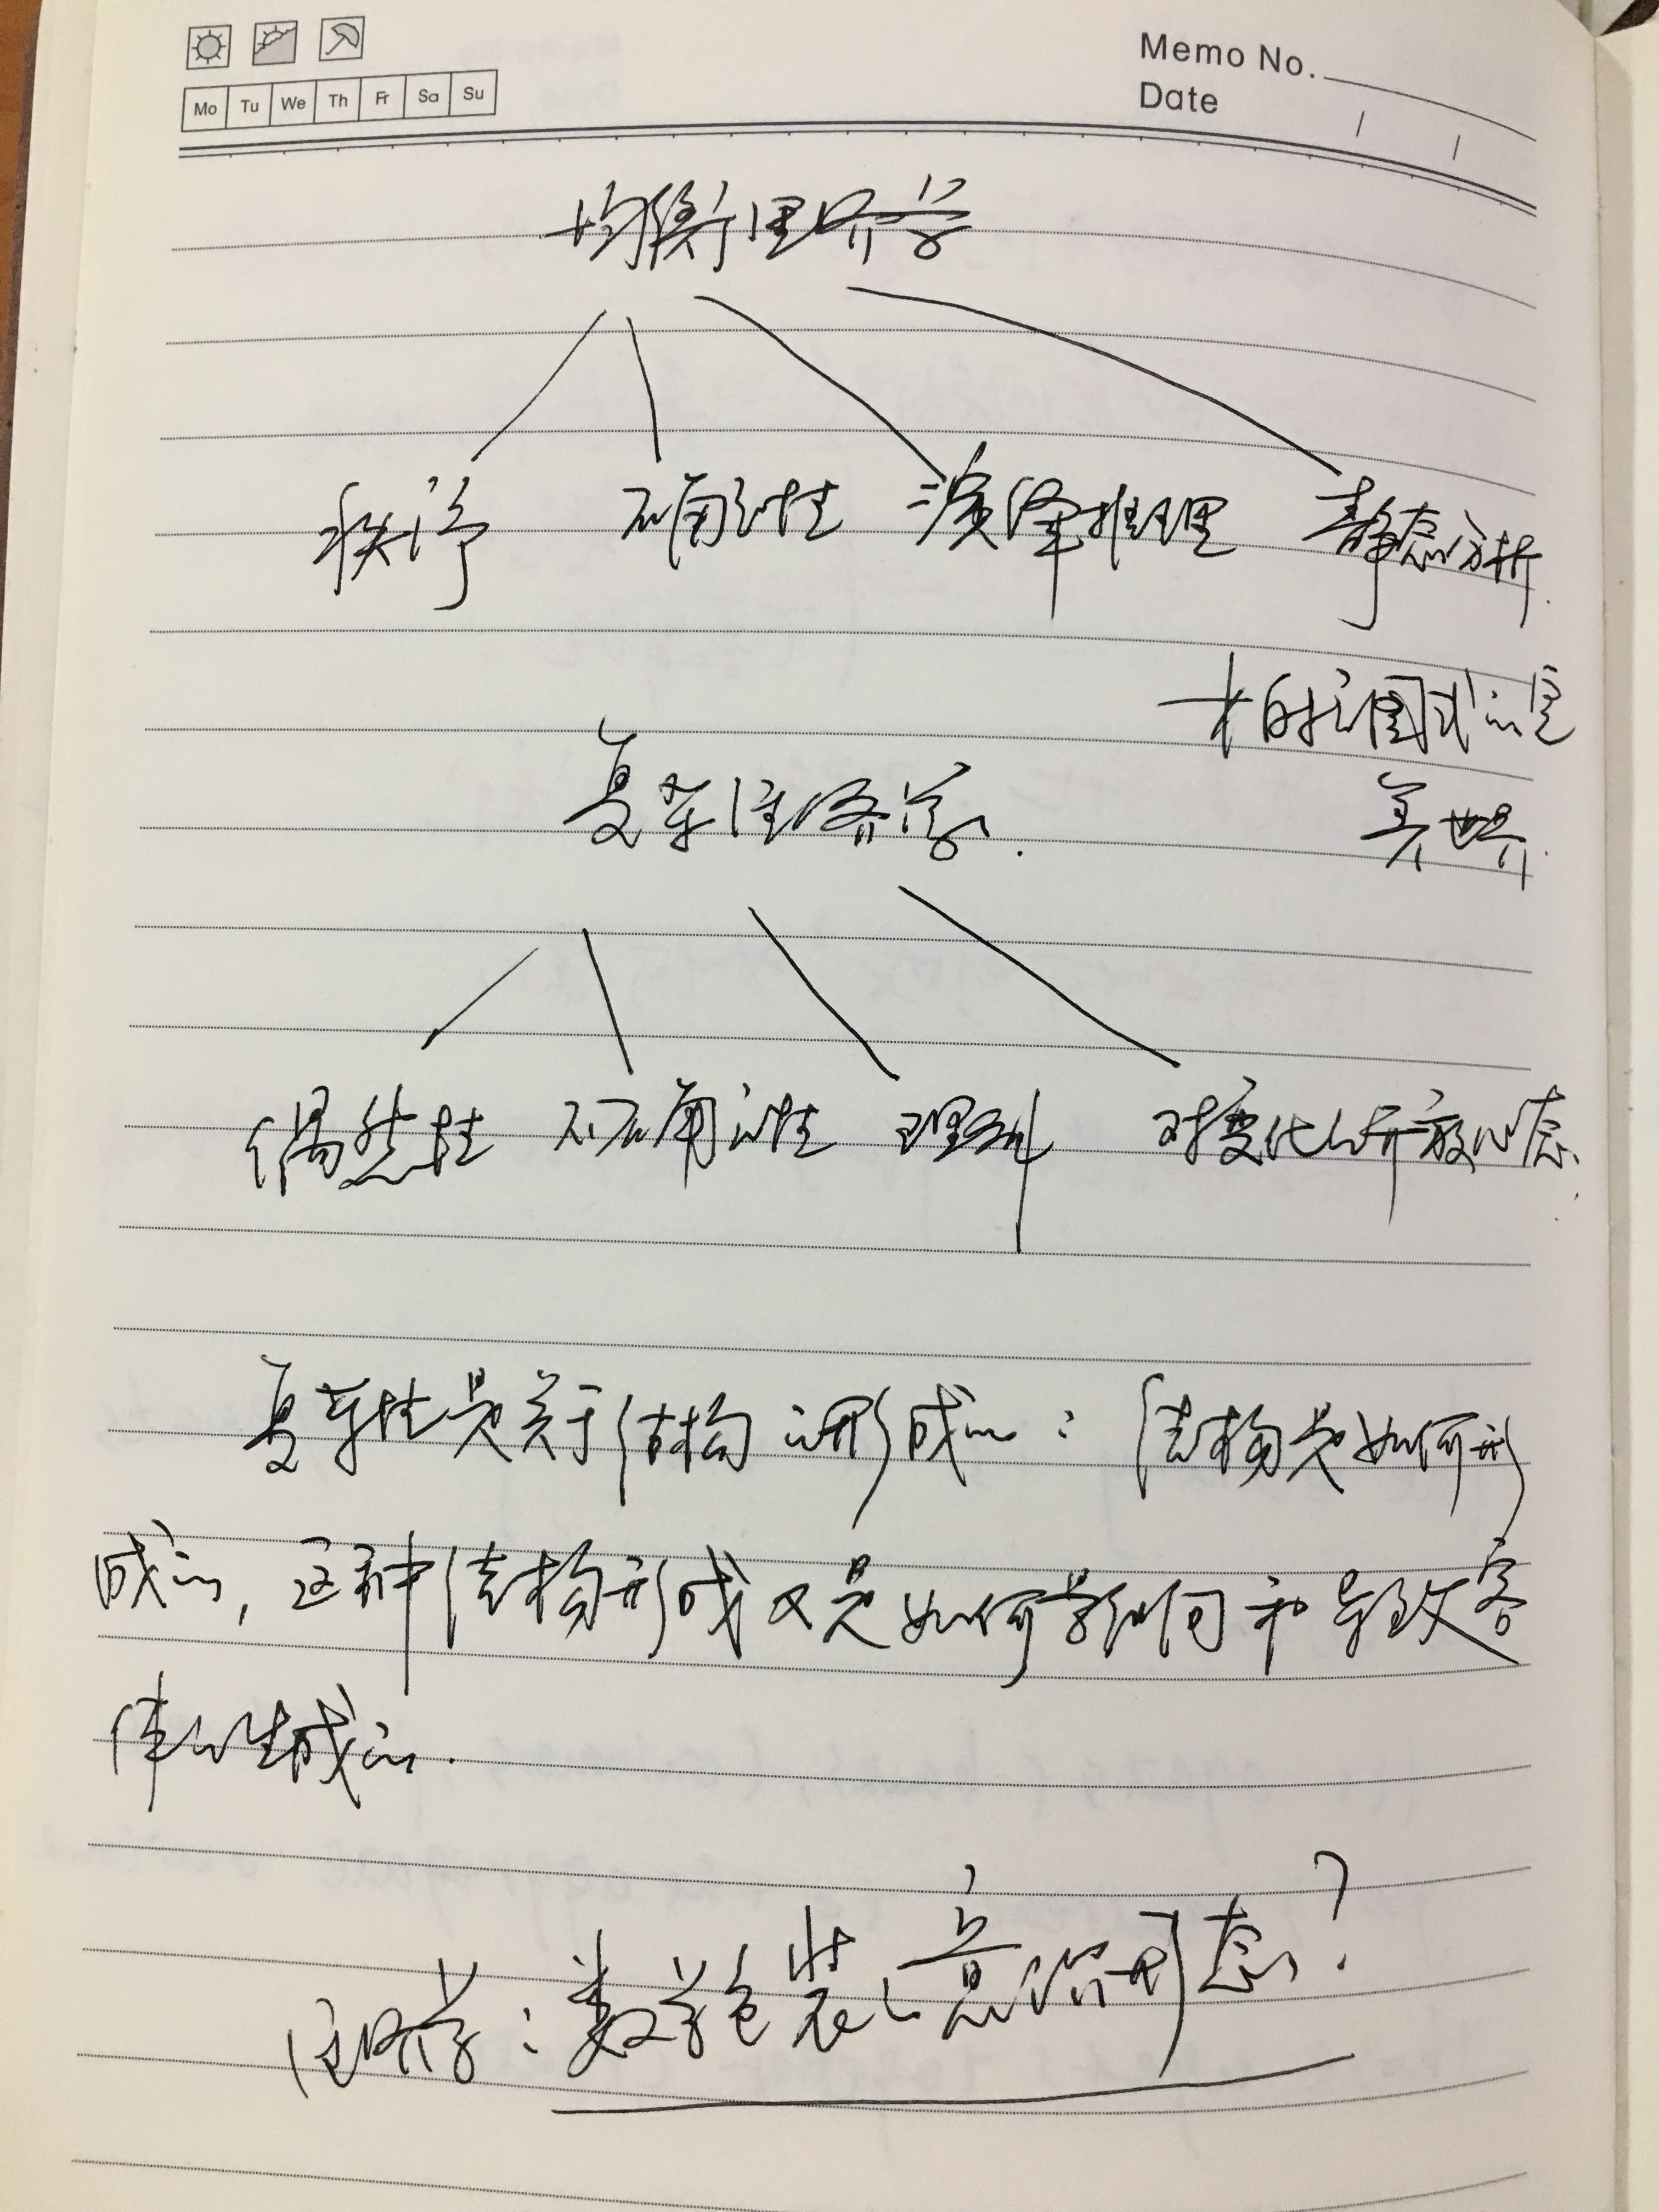 Memo No.
Date
Mo Tu We Th Fr Sa Su
均衡经济学
秩序 确定性 演绎推理 静态分析
柏拉图式的完
美世界.
复杂经济学.
偶然性 不确定性 理解 对变化的开放心态.
复杂性是关于结构的形成的：结构是如何形
成的，这种结构形成又是如何影响和导致客
体的生成的.
经济学：数学包装的意识形态？